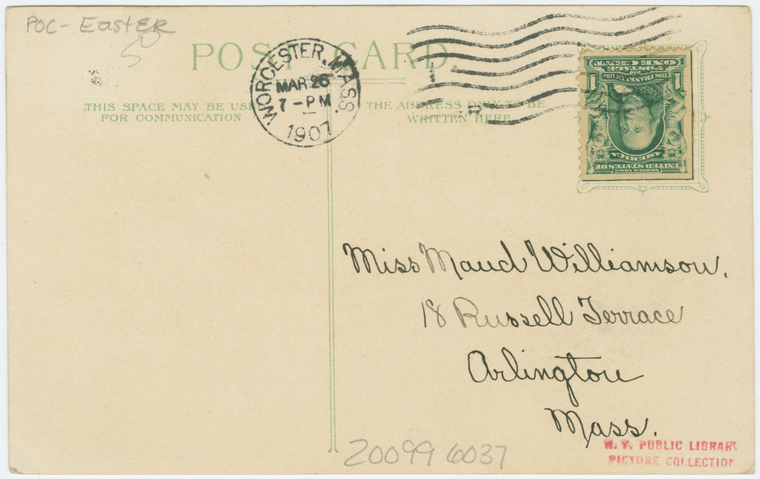 POC - Easter
50
POST CARD.
WORCESTER, MASS.
MAR 26
7 - PM
1907
THIS SPACE MAY BE USED
FOR COMMUNICATION
THE ADDRESS ONLY TO BE
WRITTEN HERE
ONE CENT
POSTAGE
1 1
AMERICA
UNITED STATES OF
SERIES 1902
Miss Maud Williamson,
18 Russell Terrace
Arlington
Mass.
200996037
N. Y. PUBLIC LIBRARY
PICTURE COLLECTION